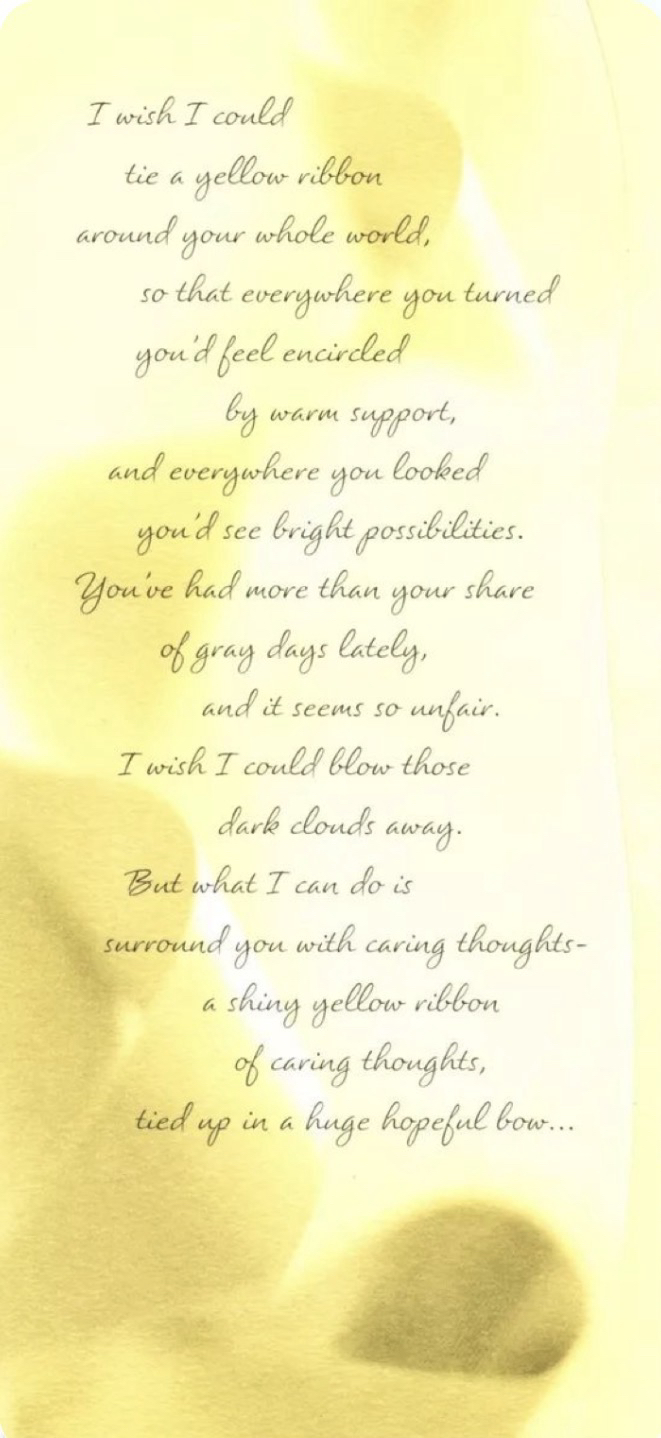 I wish I could
tie a yellow ribbon
around your whole world,
so that everywhere you turned
you'd feel encircled
by warm support,
and everywhere you looked
you'd see bright possibilities.
You've had more than your share
of gray days lately,
and it seems so unfair.
I wish I could blow those
dark clouds away.
But what I can do is
surround you with caring thoughts-
a shiny yellow ribbon
of caring thoughts,
tied up in a huge hopeful bow...